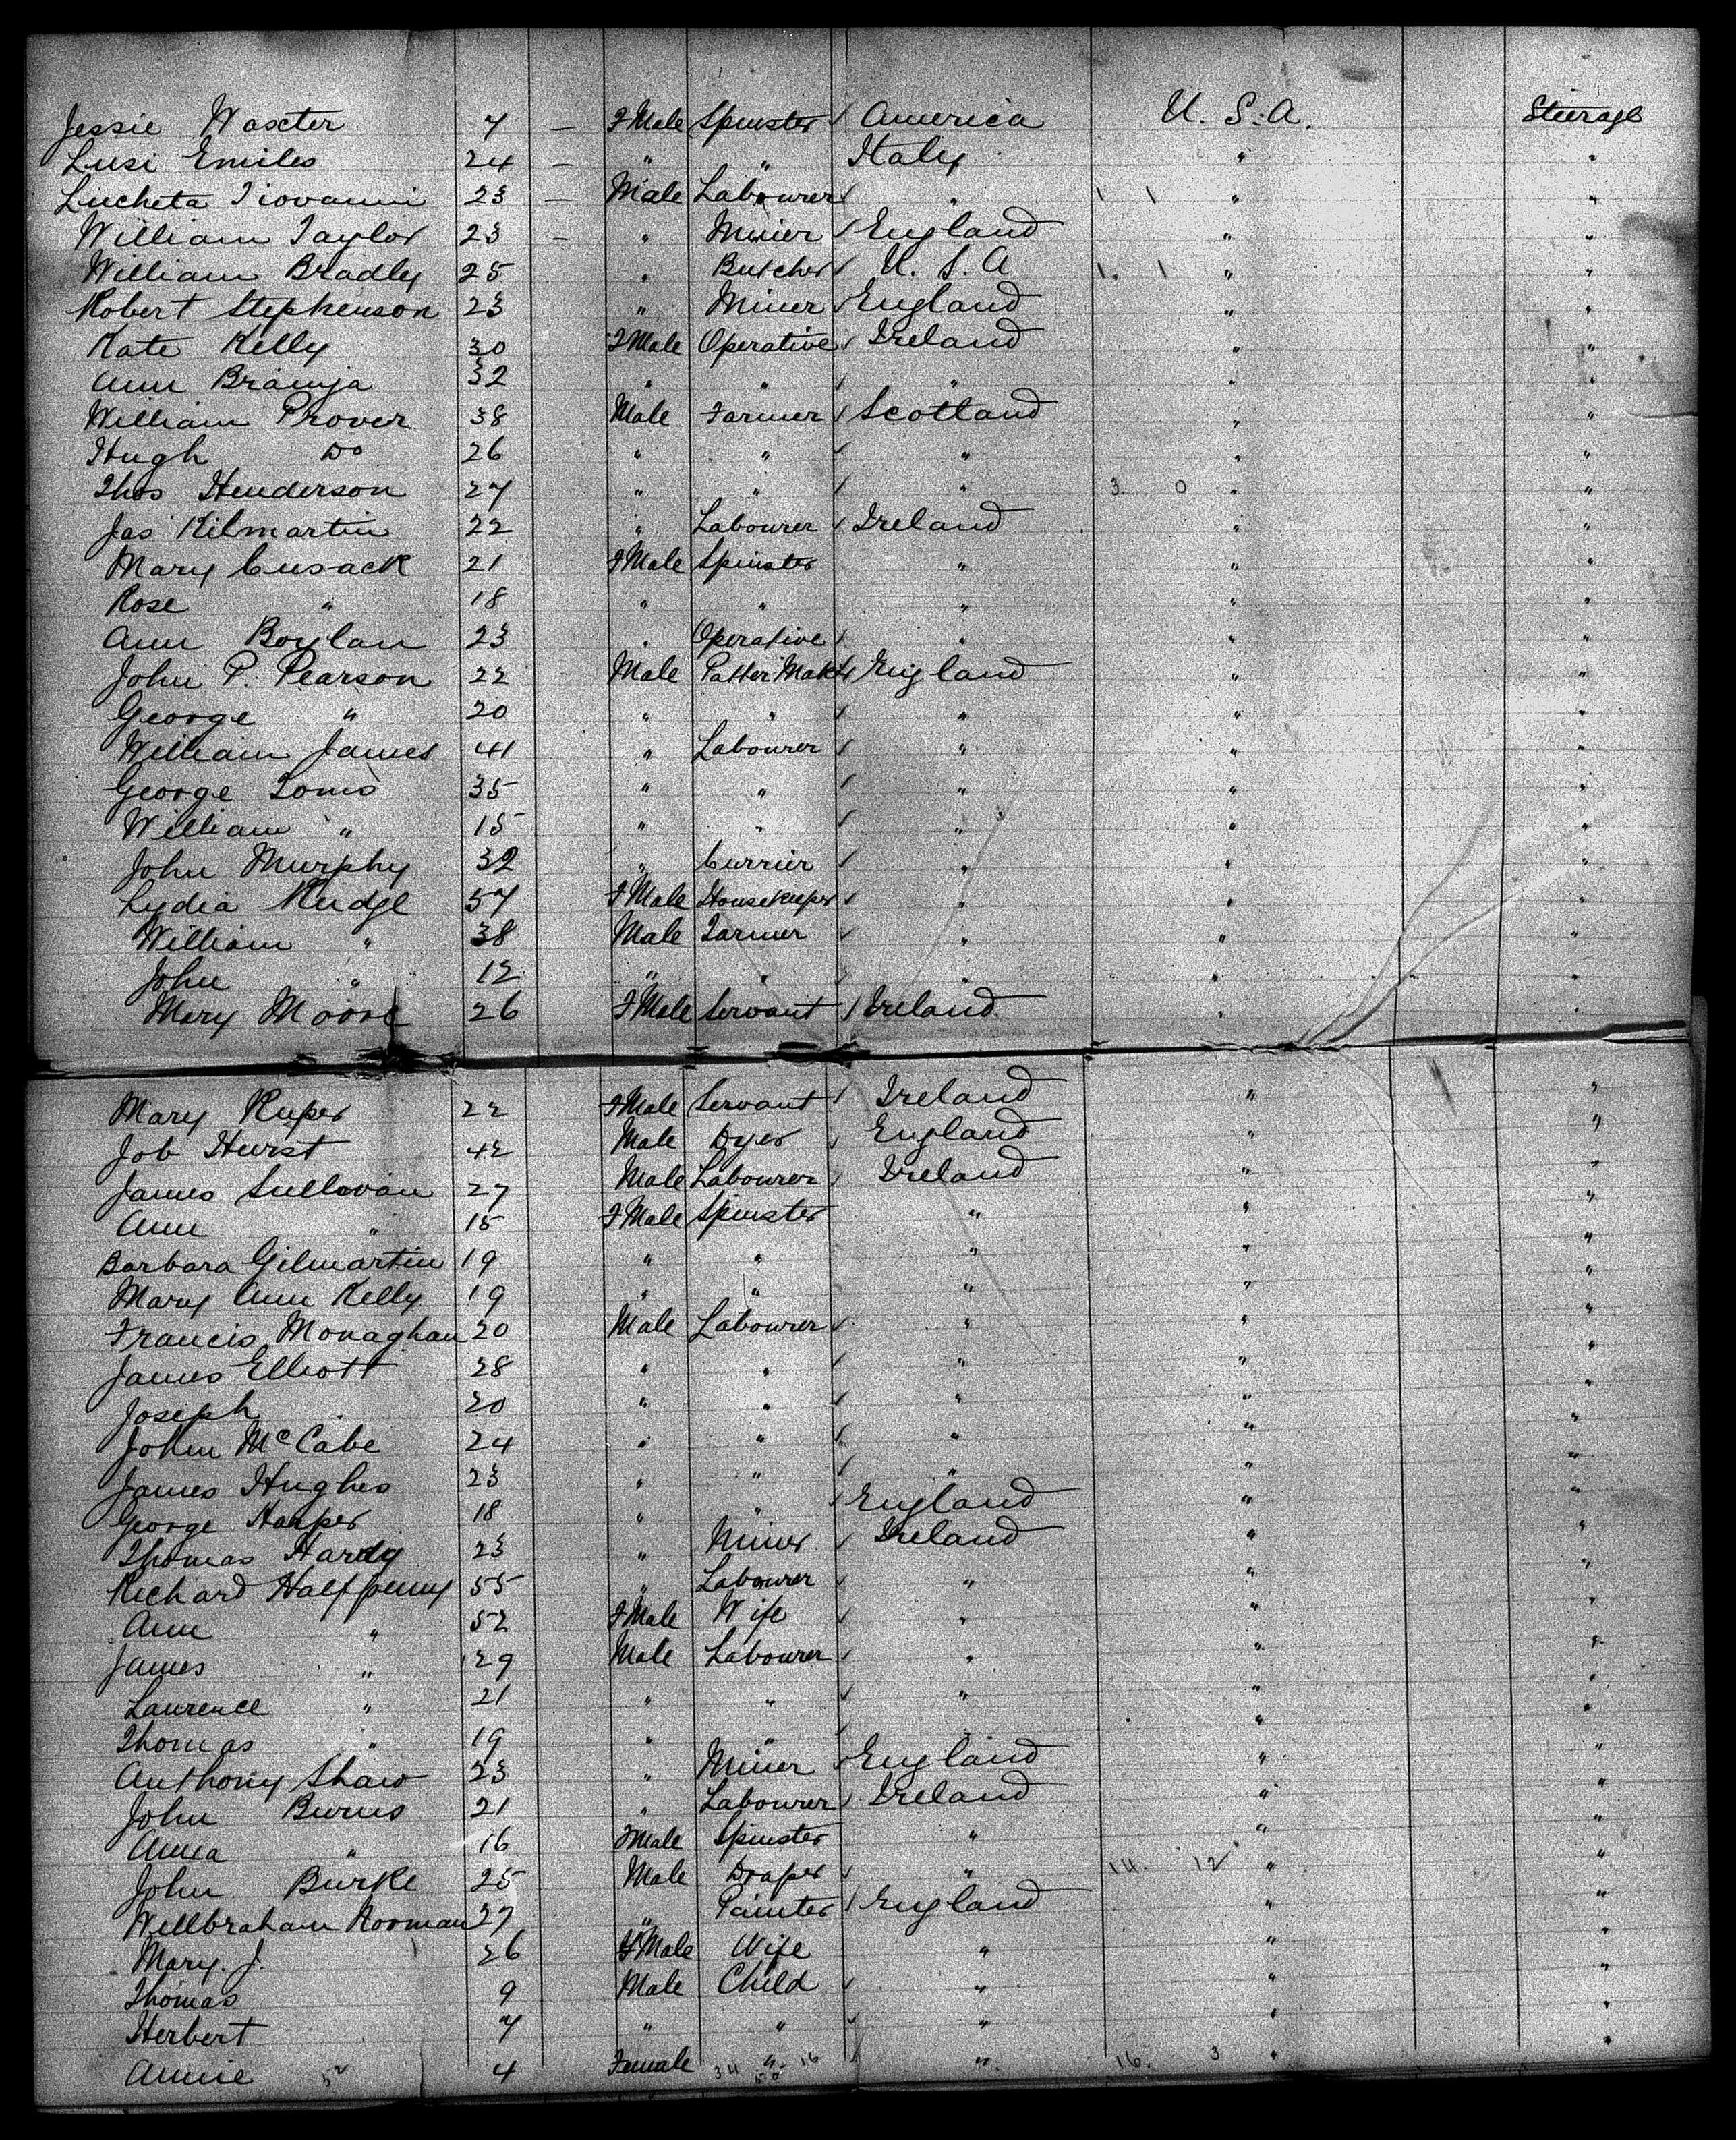 Jessie Waxter 7 — FMale Spinster America U. S. A. Steerage
Lusi Emiles 24 — " " Italy " "
Lucheta Tiovanni 23 — Male Labourer " 1 1 " "
William Taylor 23 — " Miner England " "
William Bradly 25 " Butcher U. S. A 1. 1 " "
Robert Stephenson 23 " Miner England " "
Kate Kelly 30 FMale Operative Ireland " "
Ann 32 " " " " "
William Prover 38 Male Farmer Scotland " "
Hugh Do 26 " " " " "
Thos Henderson 27 " " " 3. 0 " "
Jas Kilmartin 22 " Labourer Ireland " "
Mary Cusack 21 FMale Spinster " " "
Rose " 18 " " " " "
Ann Boylan 23 " Operative " " "
John P. Pearson 22 Male England " "
George " 20 " " " " "
William James 41 " Labourer " " "
George Toms 35 " " " " "
William " 15 " " " " "
John Murphy 32 " Currier " " "
Lydia Rudge 57 FMale Housekeeper " " "
William " 38 Male Farmer " " "
John " 12 " " " " "
Mary Moore 26 FMale Servant Ireland " "
Mary Ruper 22 FMale Servant Ireland " "
Job Hurst 42 Male Dyer England " "
James Sullovan 27 Male Labourer Ireland " "
Ann " 15 FMale Spinster " " "
Barbara Gilmartin 19 " " " " "
Mary Ann Kelly 19 " " " " "
Francis Monaghan 20 Male Labourer " " "
James Elliott 28 " " " " "
Joseph 20 " " " " "
John McCabe 24 " " " " "
James Hughes 23 " " " " "
George Harper 18 " " England " "
Thomas Hardy 23 " Miner Ireland " "
Richard Halfpenny 55 " Labourer " " "
Ann " 52 FMale Wife " " "
James " 29 Male Labourer " " "
Laurence " 21 " " " " "
Thomas " 19 " " " "
Anthony Shaw 23 " Miner England " "
John Burns 21 " Labourer Ireland " "
Anna " 16 FMale Spinster " " "
John Burke 25 Male Draper " 14. 12 " "
Wellbraham Norman 27 " Painter England " "
Mary. J. 26 FMale Wife " " "
Thomas 9 Male Child " " "
Herbert 7 " " " " "
Annie 4 Female " 16 " 16. 3 " "